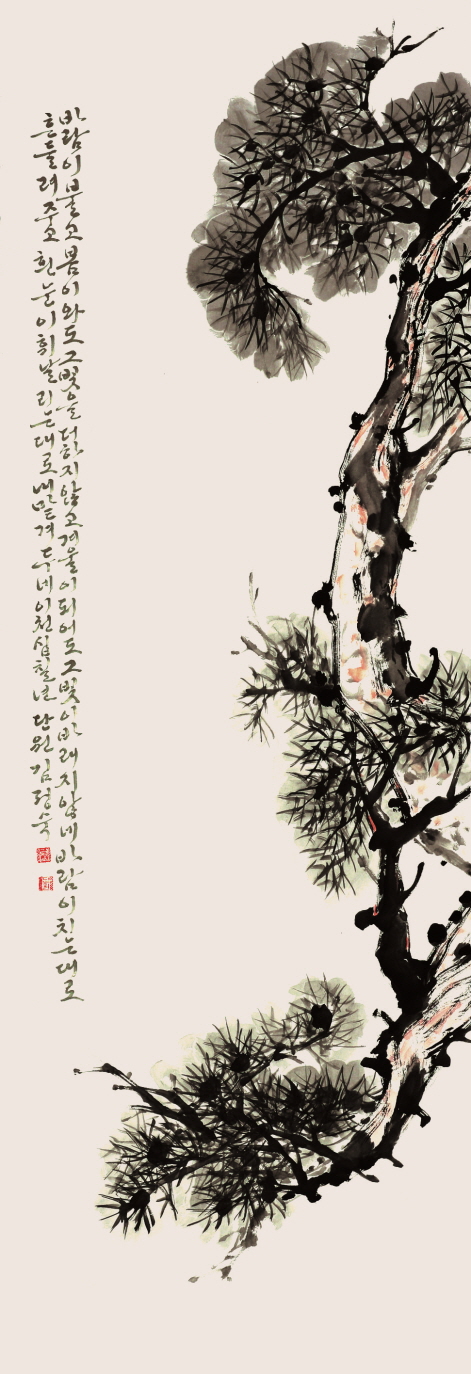 바람이 불고 봄이 와도 그 빛을 더하지 않고 겨울이 되어도 그 빛이 바래지 않네 바람이 치는대로
흔들려주고 흰 눈이 휘날리는대로 내맡겨두네 이천십칠년 단원 김정숙